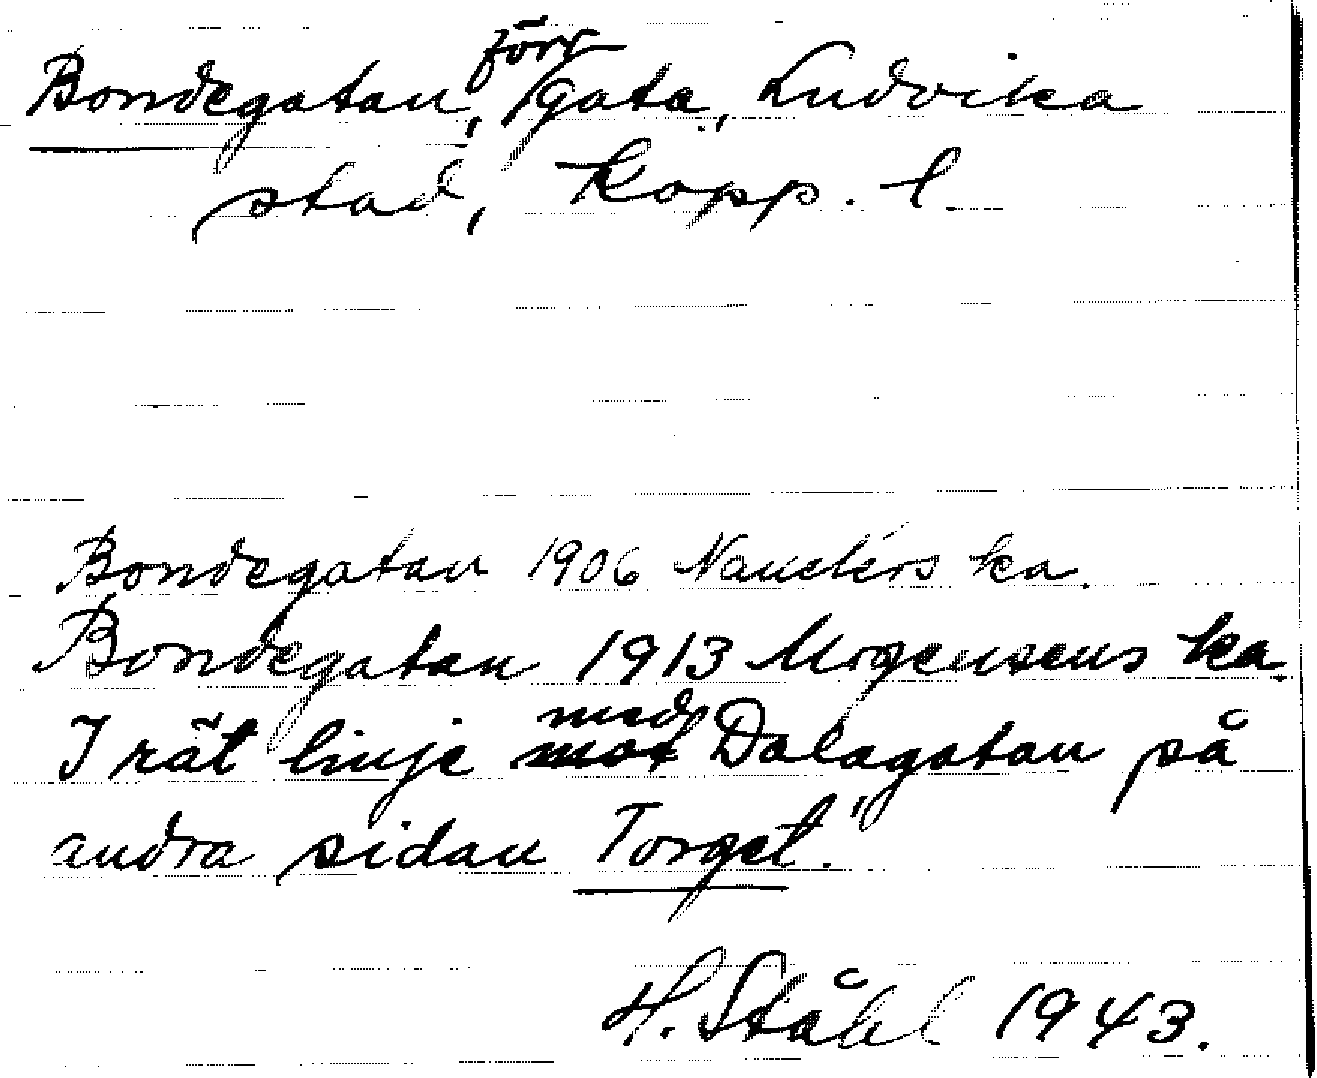 Bondegatan, förr gata, Ludvika
stad, Kopp. l.
Bondegatan 1906 Nauclérs ka.
Bondegatan 1913 Mogensens ka.
I rät linje med Dalagatan på
andra sidan Torget."
H. Ståhl 1943.